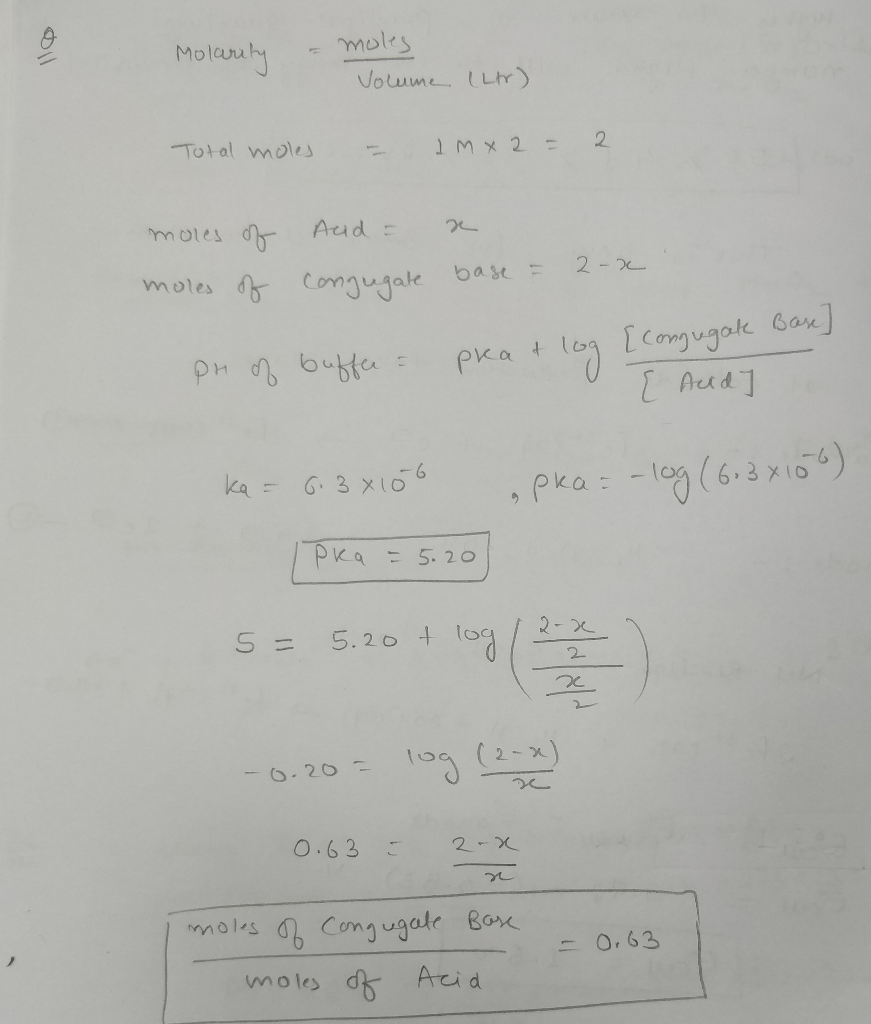 Q
Molarity = moles / Volume (Ltr)
Total moles = 1 M x 2 = 2
moles of Acid = x
moles of Conjugate base = 2-x
PH of buffer = pKa + log [Conjugate Base] / [Acid]
Ka = 6.3 x10^-6 , pKa = -log (6.3 x10^-6)
PKa = 5.20
5 = 5.20 + log ( (2-x / 2) / (x / 2) )
-0.20 = log (2-x) / x
0.63 = 2-x / x
moles of Conjugate Base / moles of Acid = 0.63